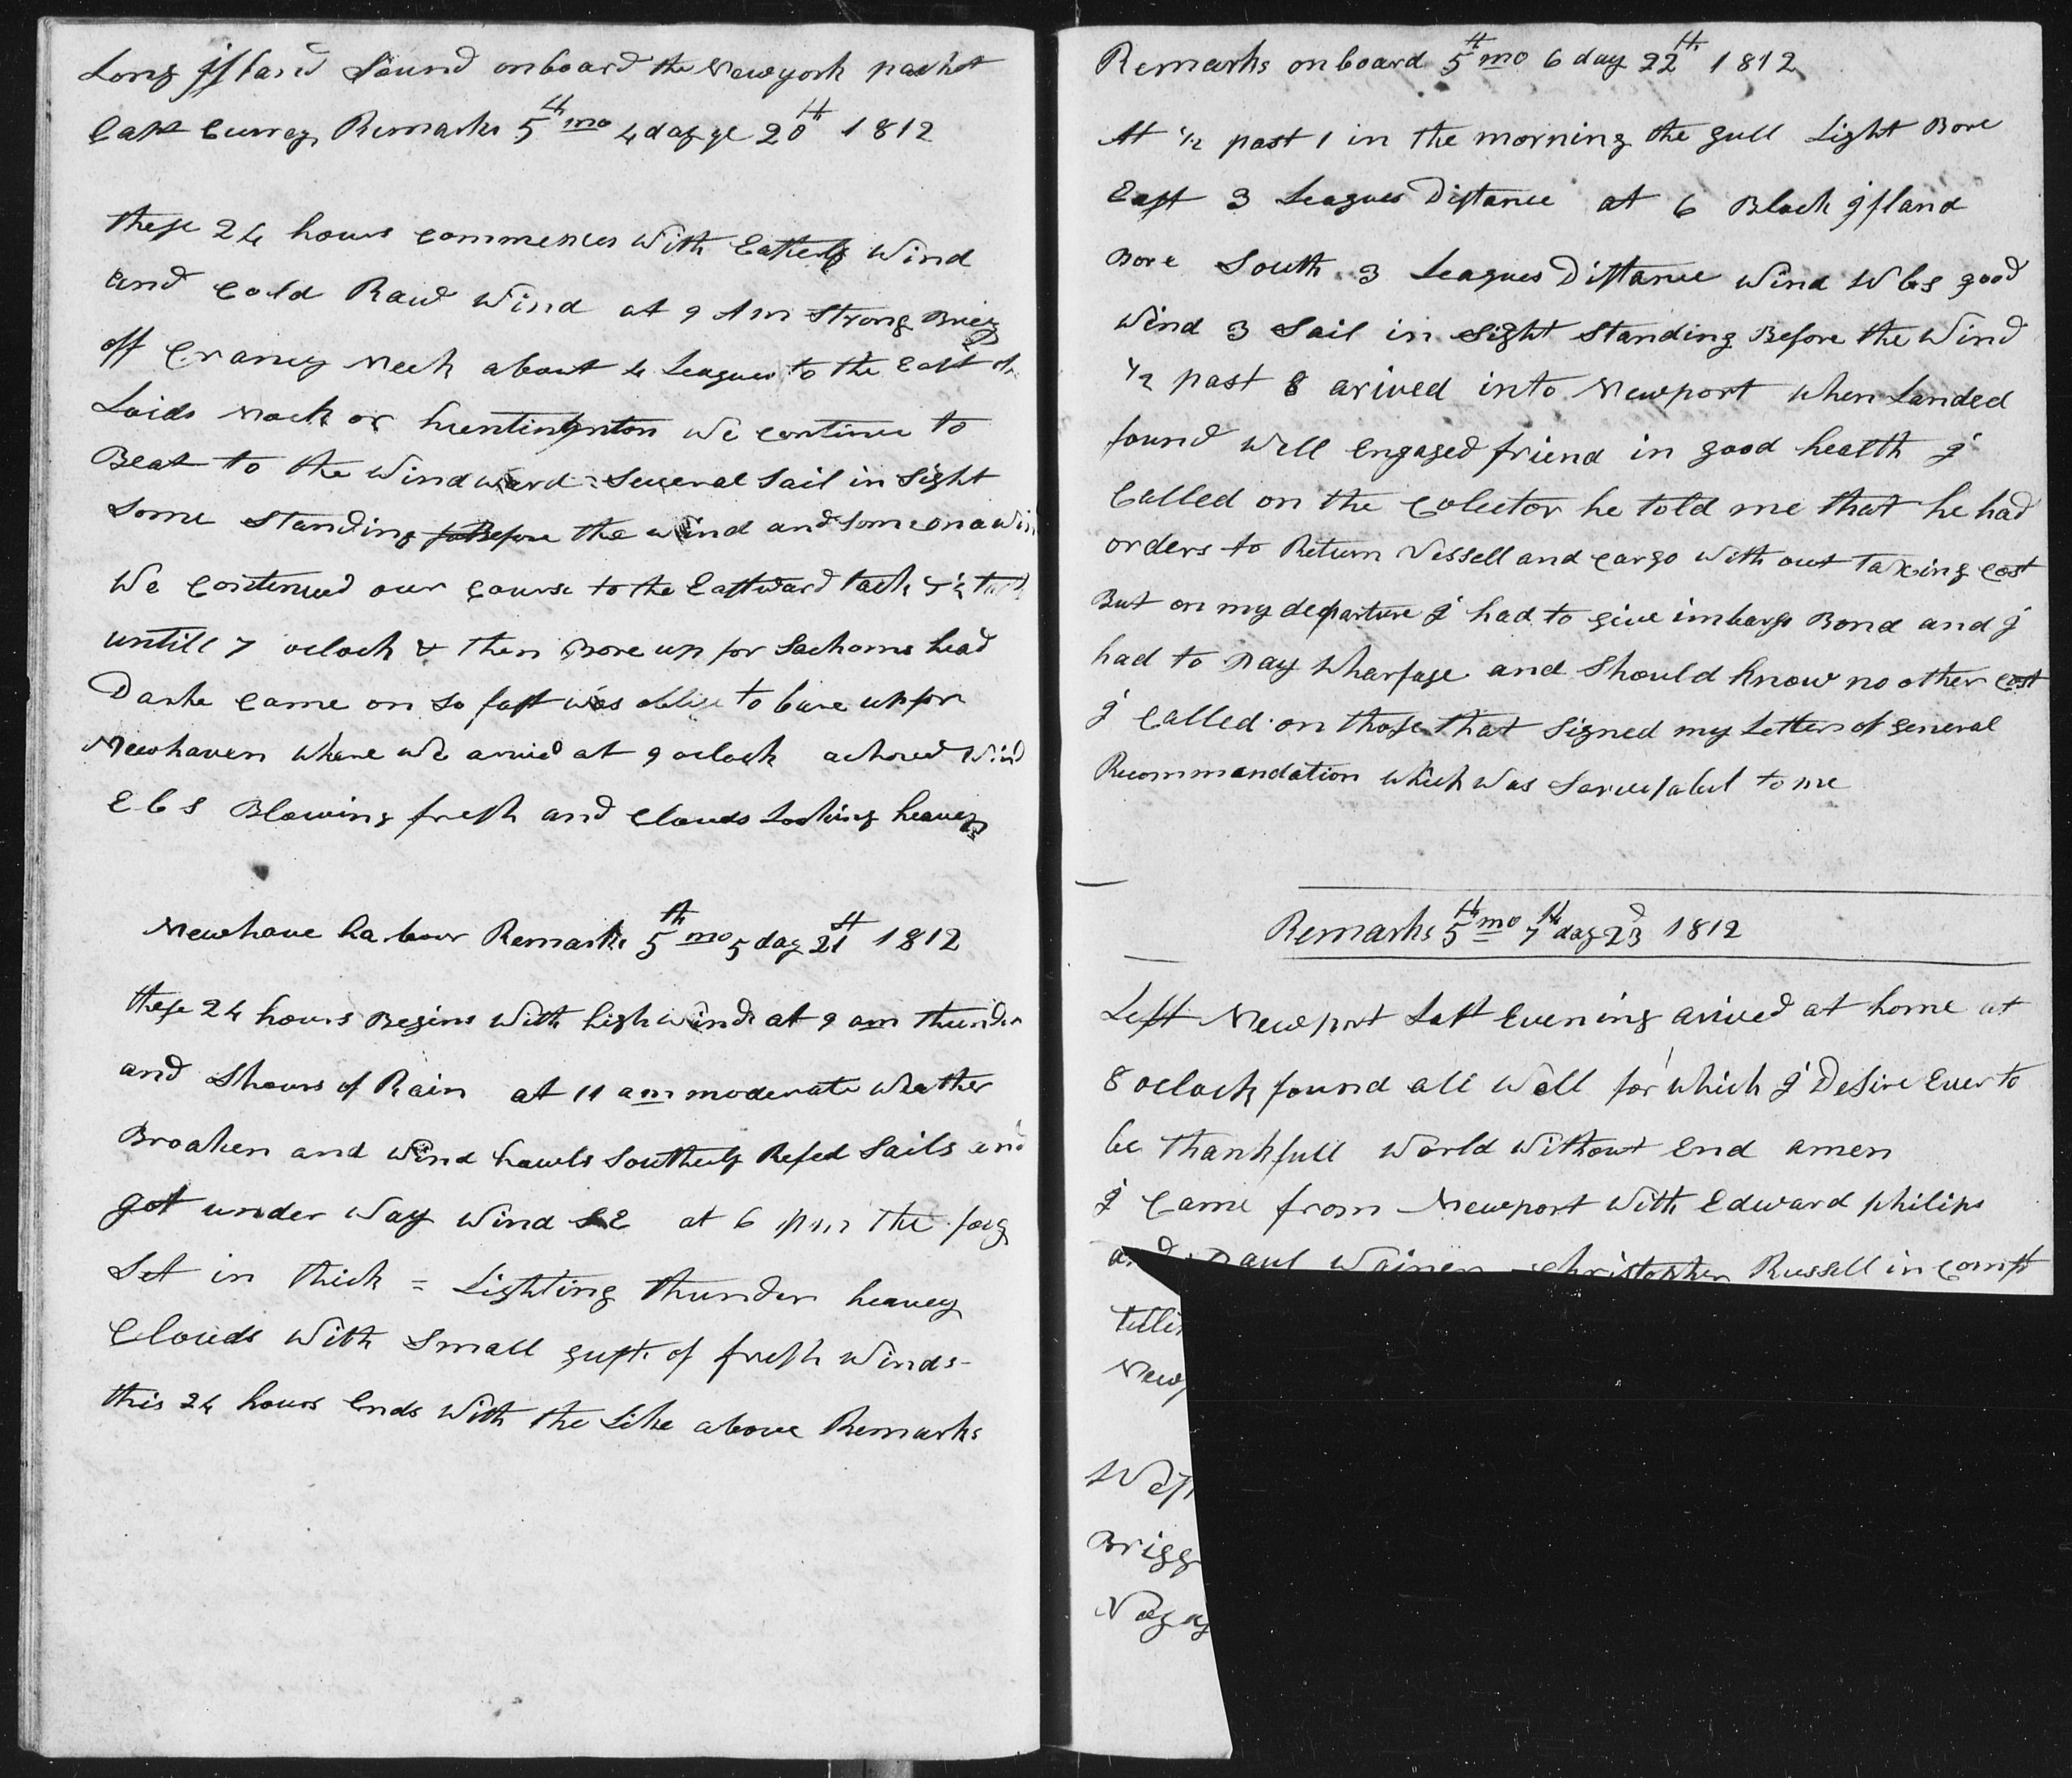 Long Island Sound onboard the Newyork packet
Capt Currey Remarks 5th mo 4 day ye 20th 1812
these 24 hours commences With Eatherly Wind
and Cold Raw Wind at 9 Am Strong Breiz
off Craney Neck about 4 Leagues to the East of
Loids Neck or huntinhnton We continue to
Beat to the Windward = Several Sail in Sight
Some Standing Before the wind and Some on a win
We Contenued our Course to the Eastward tack &
untill 7 oclock & then Bore up for Sachoms head
Darke Came on So fast was oblige to bare up for
Newhaven where we arived at 9 oclock achored Wind
E b S Blowing fresh and Clouds Looking heavey
Newhave harbour Remarks 5th mo 5 day 21st 1812
these 24 hours Begins With high winds at 9 am thunder
and Showrs of Rain at 11 am moderate Weather
Broaken and Wind hawls Southerly Refed Sails and
got under Way Wind SE at 6 pm The fog
Set in thick = Lighting thunder heavey
Clouds With Small gusts of fresh Winds-
this 24 hours Ends With the Like above Remarks
Remarks onboard 5th mo 6 day 22th 1812
At ½ past 1 in the morning the gull Light Bore
East 3 Leagues Distance at 6 Block Island
Bore South 3 Leagues Distance Wind W b S good
Wind 3 Sail in Sight Standing Before the Wind
½ past 8 arived into Newport When Landed
found Well Engaged friend in good health I
Called on the Colector he told me that he had
orders to Return Vessell and cargo With out Taxing cost
But on my departure I had to give imbargo Bond and I
had to Pay Wharfage and Should know no other cost
I Called on those that Signed my Letters of general
Recommandation which Was Sarvesabul to me
Remarks 5th mo 7th day 23d 1812
Left Newport Last Evening arived at home at
8 oclock found all Well for which I Desire Ever to
be thankfull World Without End amen
I Came from Newport With Edward philips
and Paul Wainer Christopher Russell in Compt